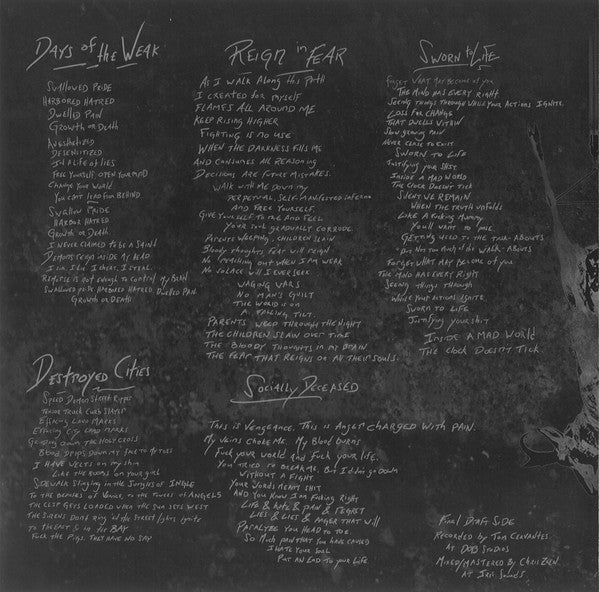 Days of the Weak
Swallowed Pride
Harbored Hatred
Dwelled Pain
Growth or Death
Anesthetized
Desensitized
In a life of lies
Free yourself, open your mind
Change your world
You can't lead from behind
Swallow Pride
Harbor Hatred
Growth or Death
I never claimed to be a saint
Demons reign inside my head
I sin. I lie. I cheat. I steal.
Remorse is not enough to control my
Swallowed pride Harbored Hatred Dwelled Pain
Growth or Death
Destroyed Cities
Speed Demon Street Ripper
Truck Curb Slayer
Effecing Land Marks
City Land Marks
Grinding down the Holy Cross
Blood drips down my
I have welts on my shin
Like the on your girl
Sidewalk Slinging in the Jungles of Ingle
To the beaches of Venice, to the towers of Angels
The clip gets loaded when the sun sets west
The sirens don't ring til the street lights ignite
to the East & in the Bay
Fuck the Pigs. They have no say
Reign in Fear
As I walk along this path
I created for myself
Flames all around me
Keep rising higher
Fighting is no use
When the darkness fills me
And consumes all reasoning
Decisions are future mistakes.
Walk with me down my
perpetual, self-manifested inferno
and free yourself.
Give yourself to me and feel
your soul gradually corrode.
Parents weeping, children slain
Bloody thoughts fear will reign
No out when I'm weak
No solace will I ever seek
Waging wars
No man's guilt
The world is on
a falling tilt.
Parents weep through the night
The children slain over time
The bloody thoughts in my brain
The fear that reigns on all their souls.
Socially Deceased
This is vengeance. This is anger charged with pain.
My veins choke me. My blood burns
Fuck your world and fuck your life.
You tried to break me, but I didn't go down
without a fight.
Your words meant shit
And you know I'm fucking right
Life & hate & pain & regret
Lies & lies & anger that will
Paralyze you head to toe
So much pain that you have caused
I hate your soul
Put an end to your life.
Sworn to Life
Forget what may become of you
The mind has every right
Seeing things through while your actions ignite.
Loss for change
That dwells within
Slow growing pain
Never cease to exist
Sworn to life
Justifying your shit
Inside a mad world
The clock doesn't tick
Silent we remain
When the truth unfolds
Like a fucking mummy
You'll want to
Getting held to the
Do not too much of the where abouts
Forget what may become of you
The mind has every right
Seeing things through
While your actions ignite
Sworn to life
Justifying your shit
Inside a mad world
The clock doesn't tick
Final Draft Side
Recorded by Tom Cervantes
at DOB Studios
Mixed/Mastered by Chris
at Iris Sounds